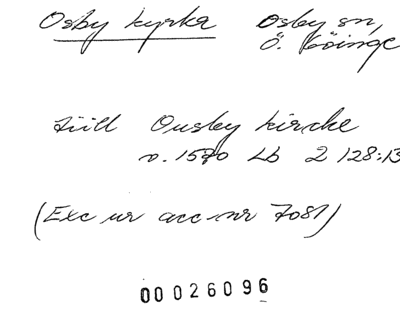 Osby kyrka Osby sn,
Ö. Göinge
till Ousby kircke
v. 1570 Lb 2 128:13
(Exc ur acc-nr 7081)
00026096